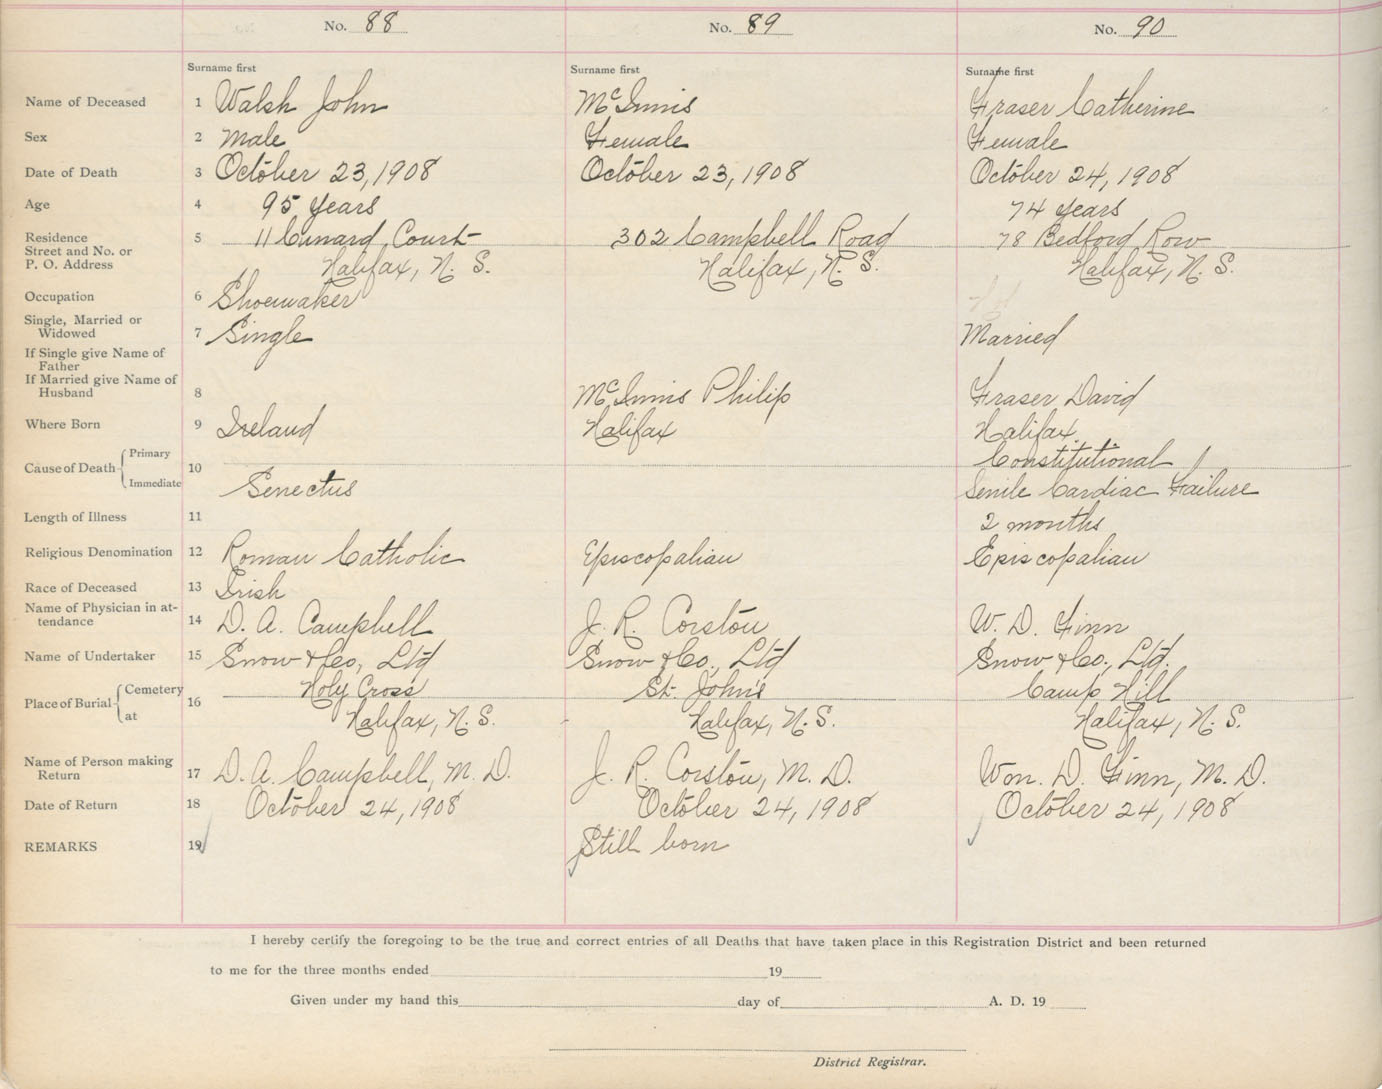 No. 88 No. 89 No. 90
Surname first Surname first Surname first
Name of Deceased 1 Walsh John McInnis Fraser Catherine
Sex 2 Male Female Female
Date of Death 3 October 23, 1908 October 23, 1908 October 24, 1908
Age 4 95 years 74 years
Residence 5 11 Cunard Court 302 Campbell Road 78 Bedford Row
Street and No. or
P. O. Address Halifax, N. S. Halifax, N. S. Halifax, N. S.
Occupation 6 Shoemaker
Single, Married or
Widowed 7 Single Married
If Single give Name of
Father
If Married give Name of
Husband 8 McInnis Philip Fraser David
Where Born 9 Ireland Halifax Halifax
Cause of Death Primary 10 Constitutional
Immediate Senectus Senile Cardiac Failure
Length of Illness 11 2 months
Religious Denomination 12 Roman Catholic Episcopalian Episcopalian
Race of Deceased 13 Irish
Name of Physician in at-
tendance 14 D. A. Campbell J. R. Corston W. D. Finn
Name of Undertaker 15 Snow & Co, Ltd Snow & Co., Ltd Snow & Co., Ltd.
Place of Burial Cemetery 16 Holy Cross St. John's Camp Hill
at Halifax, N. S. Halifax, N. S. Halifax, N. S.
Name of Person making
Return 17 D. A. Campbell, M. D. J. R. Corston, M. D. Wm. D. Finn, M. D.
Date of Return 18 October 24, 1908 October 24, 1908 October 24, 1908
REMARKS 19 Still born
I hereby certify the foregoing to be the true and correct entries of all Deaths that have taken place in this Registration District and been returned
to me for the three months ended 19
Given under my hand this day of A. D. 19
District Registrar.